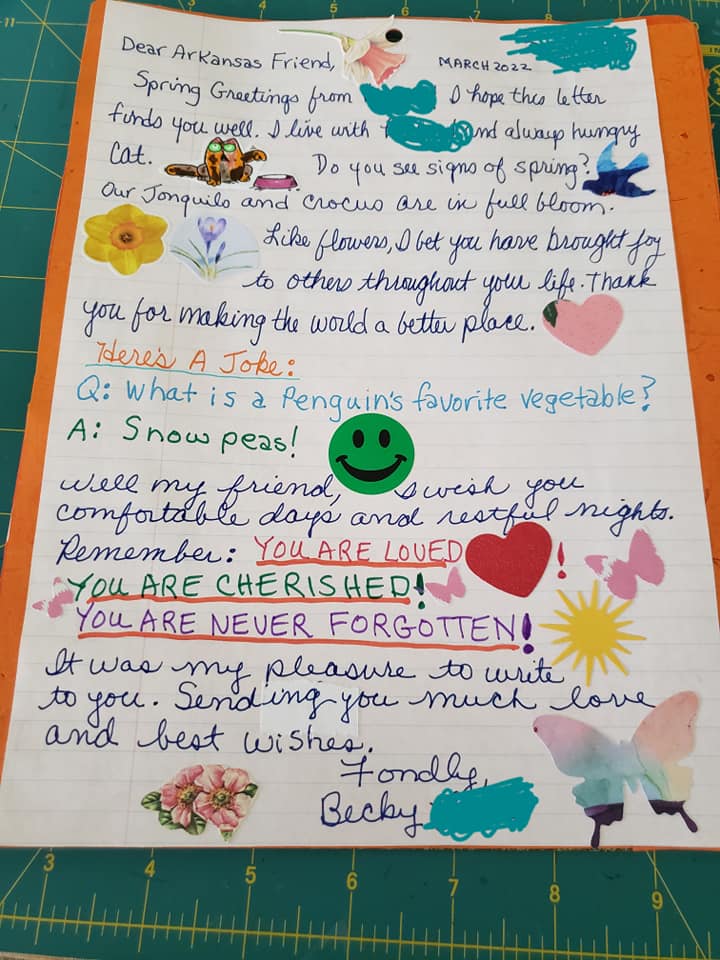 Dear Arkansas Friend,
MARCH 2022
Spring Greetings from I hope this letter
finds you well. I live with and always hungry
Cat. Do you see signs of spring?
Our Jonquils and crocus are in full bloom.
Like flowers, I bet you have brought joy
to others throughout your life. Thank
you for making the world a better place.
Here's A Joke:
Q: What is a Penguin's favorite vegetable?
A: Snow peas!
Well my friend, I wish you
comfortable days and restful nights.
Remember: YOU ARE LOVED!
YOU ARE CHERISHED!
YOU ARE NEVER FORGOTTEN!
It was my pleasure to write
to you. Sending you much love
and best wishes.
Fondly,
Becky
3 4 5 6 7 8 9